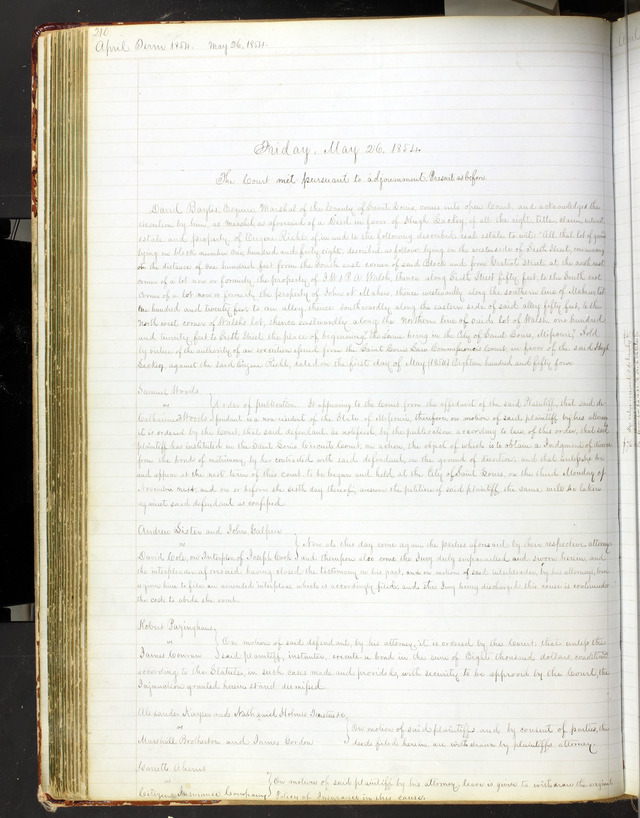 210
April Term 1854. May 26, 1854.
Friday, May 26, 1854.
The Court met pursuant to adjournment. Present as before.
David Bayles Esquire Marshal of the County of Saint Louis, comes into open Court, and acknowledges the
execution by him, as Marshal as aforesaid of a Deed in favor of Hugh of all the right, title, claim, interest,
estate and property of Eugene of in and to the following described real estate to wit: "All that lot of ground
lying in block number one hundred and forty eight, described as follows: lying on the side of Sixth Street, commencing
at the distance of one hundred feet from the South east corner of said Block and from Street at the south east
corner of a lot now or formerly the property of J & P. A. Walsh, thence along Sixth Street fifty feet to the South east
corner of a lot now or formerly the property of John A. Maher, thence westwardly along the southern line of Mahers lot
one hundred and twenty feet to an alley, thence southwardly along the eastern side of said alley fifty feet, to the
north west corner of Walsh's lot, thence eastwardly along the Northern line of said lot of Walsh one hundred
and twenty feet to Sixth Street the place of beginning," the same being in the City of Saint Louis, Missouri; Sold
by virtue of the authority of an execution issued from the Saint Louis Law Commissioners Court in favor of the said Hugh
against the said Eugene dated on the first day of May (1854) Eighteen hundred and fifty four.
Samuel Woods
vs
Order of publication. It appearing to the Court from the affidavit of the said Plaintiff, that said de-
Catherine Woods fendant is a non-resident of the State of Missouri, therefore on motion of said plaintiff by his attorney
it is ordered by the Court, that said defendant be notified, by the publication according to law of this order, that said
plaintiff has instituted in the Saint Louis Circuit Court an action, the object of which is to obtain a Judgment of divorce
from the bonds of matrimony by him contracted with said defendant, on the ground of desertion, and that unless she be
and appear at the next term of this court to be begun and held at the City of Saint Louis, on the third Monday of
November next, and on or before the sixth day thereof, answer the petition of said plaintiff, the same will be taken
against said defendant as confessed.
Andrew Lister and John Gulpin
vs
Now at this day come again the parties aforesaid by their respective attorneys
David Cole, on Interplea of Joseph Cook and thereupon also come the Jury duly impannelled and sworn herein, and
the interpleader aforesaid having closed the testimony on his part, and on motion of said interpleader, by his attorney, leave
is given him to file an amended interplea which is accordingly filed; and the Jury being discharged, this cause is continued
the costs to abide the event.
Robert
vs
On motion of said defendant, by his attorney, it is ordered by the Court, that unless the
James Conran said plaintiff, instanter, execute a bond in the sum of Eight thousand dollars conditioned
according to the Statute, in such cases made and provided, with security to be approved by the Court, the
Injunction granted herein stand dissolved.
Alexander Kayser and Nathaniel Holmes Trustees &c.
vs
On motion of said plaintiffs and by consent of parties, the
Marshall Brotherton and James Gordon deeds filed herein are withdrawn by plaintiffs attorney
Garrett Aherns
vs
On motion of said plaintiff by his attorney, leave is given to withdraw the original
Citizens Insurance Company Policy of Insurance in this cause.